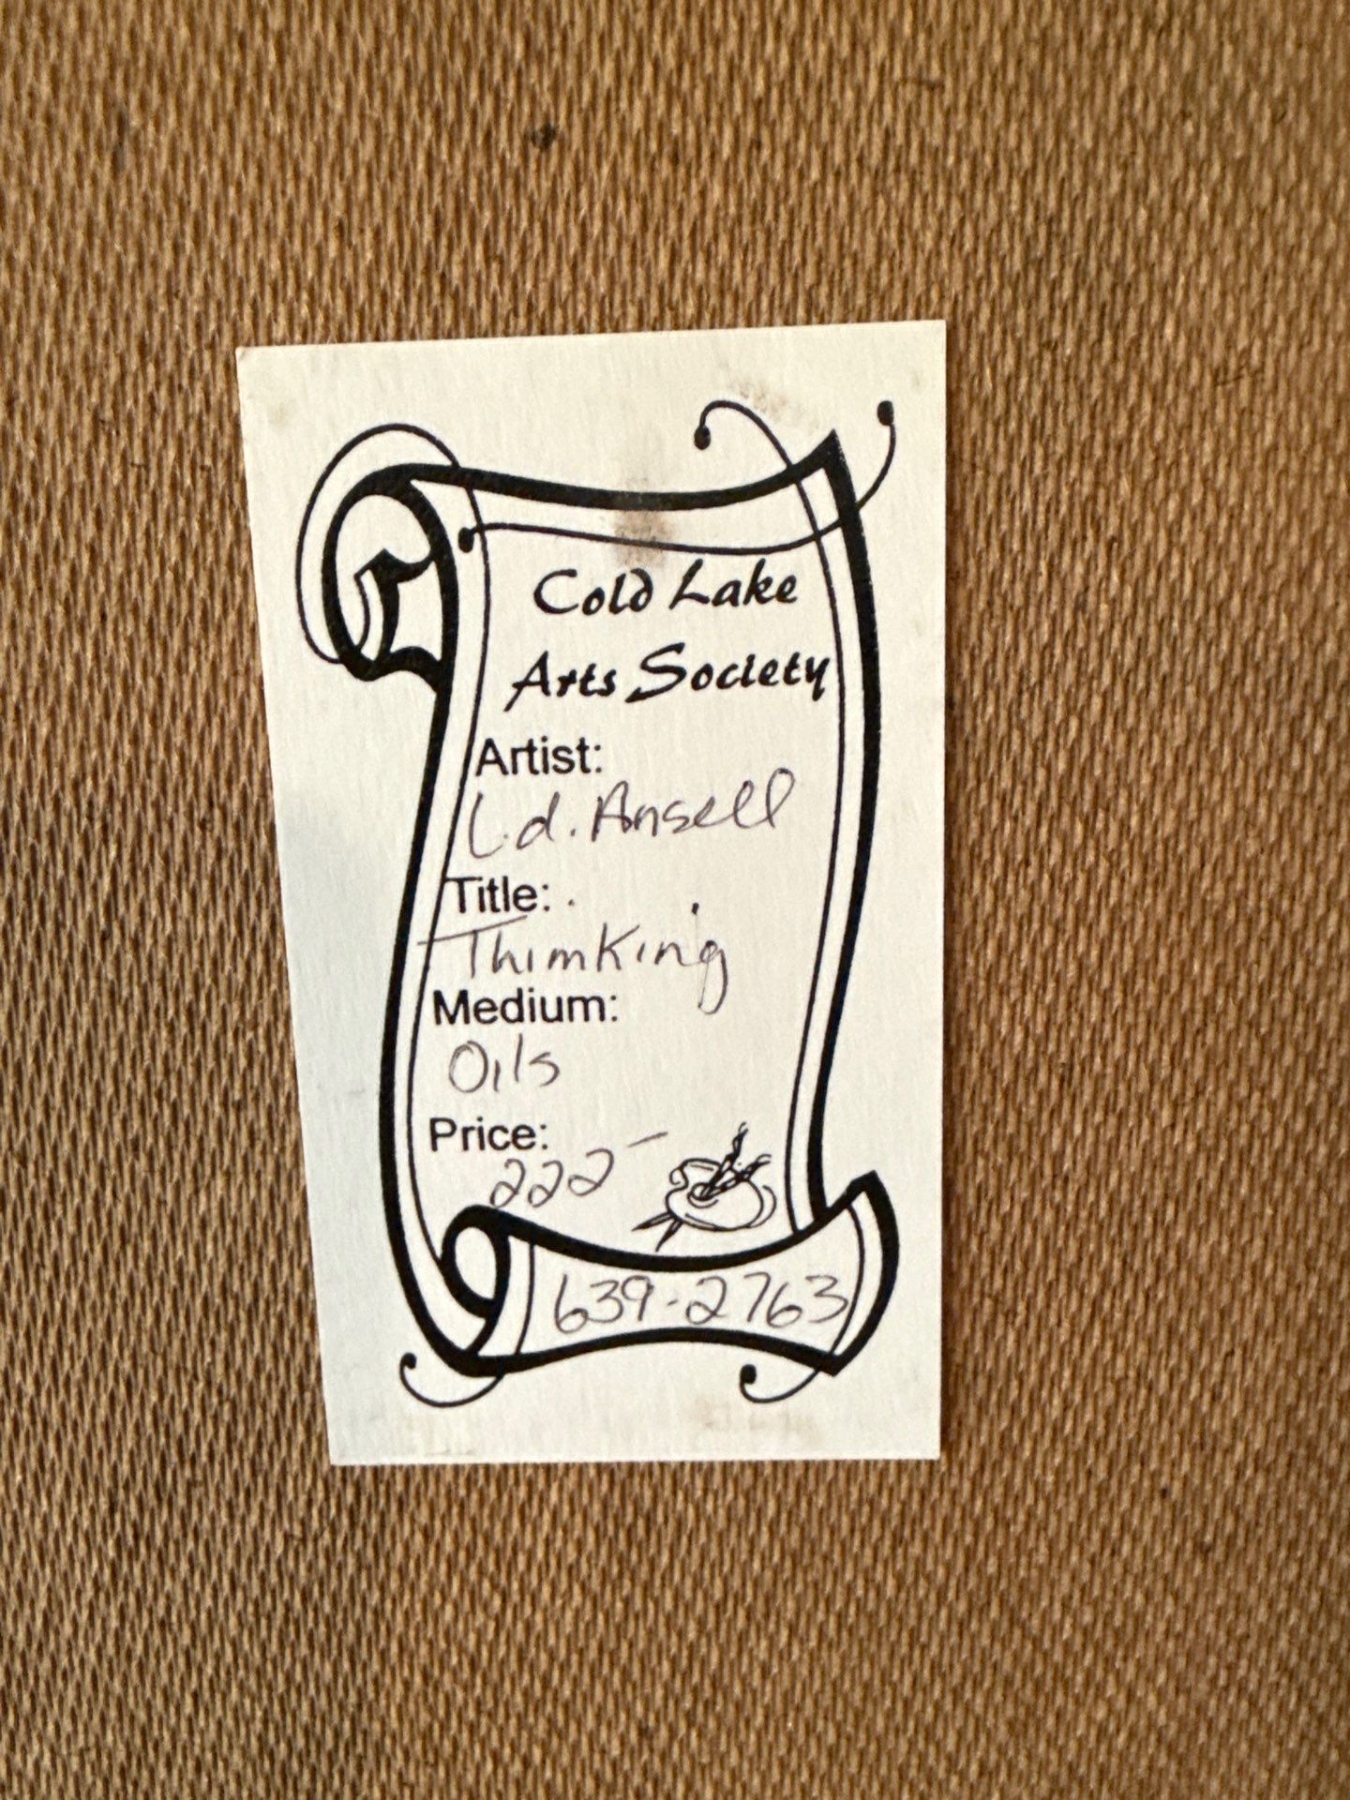 Cold Lake
Arts Society
Artist:
L.d. Ansell
Title:
ThimKing
Medium:
Oils
Price:
222-
639-2763